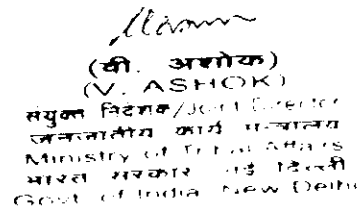 (वी. अशोक)
(V. ASHOK)
संयुक्त निदेशक/Joint Director
जनजातीय कार्य मंत्रालय
Ministry of Tribal Affairs
भारत सरकार नई दिल्ली
Govt. of India, New Delhi